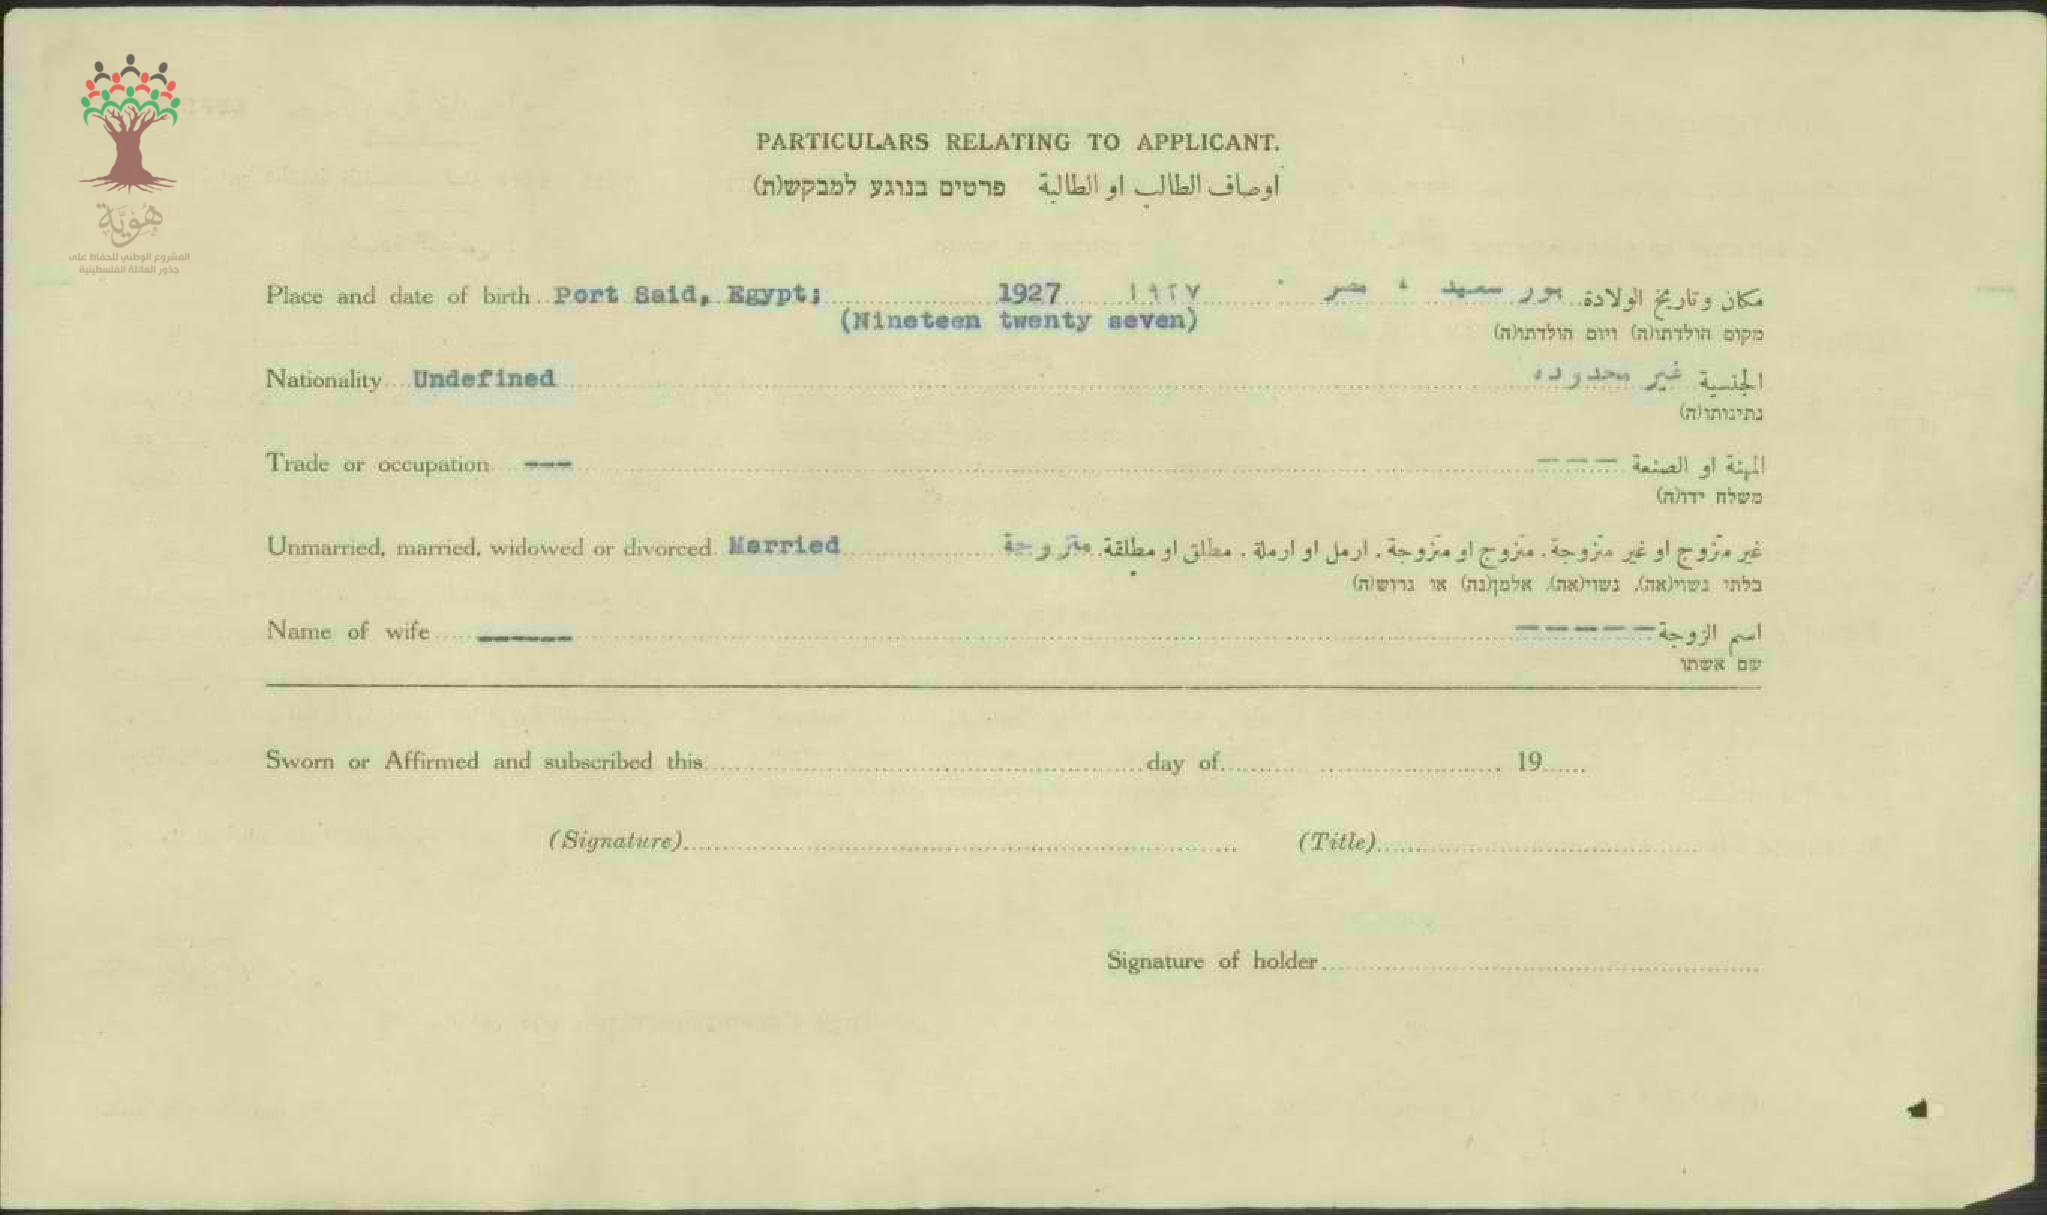 هُوِيَّة
المشروع الوطني للحفاظ على
جذور العائلة الفلسطينية
PARTICULARS RELATING TO APPLICANT.
اوصاف الطالب او الطالبة פרטים בנוגע למבקש(ת)
Place and date of birth Port Said, Egypt; 1927 ١٩٢٧ مكان وتاريخ الولادة بور سعيد ، مصر
(Nineteen twenty seven) מקום הולדתו(ה) ויום הולדתו(ה)
Nationality Undefined الجنسية غير محدوده
נתינותו(ה)
Trade or occupation --- المهنة او الصنعة ---
משלח ידו(ה)
Unmarried, married, widowed or divorced Married غير متزوج او غير متزوجة. متزوج او متزوجة. ارمل او ارملة. مطلق او مطلقة. متزوجة
בלתי נשוי(אה), נשוי(אה), אלמן(נה) או גרוש(ה)
Name of wife ------ اسم الزوجة -----
שם אשתו
Sworn or Affirmed and subscribed this day of 19
(Signature) (Title)
Signature of holder